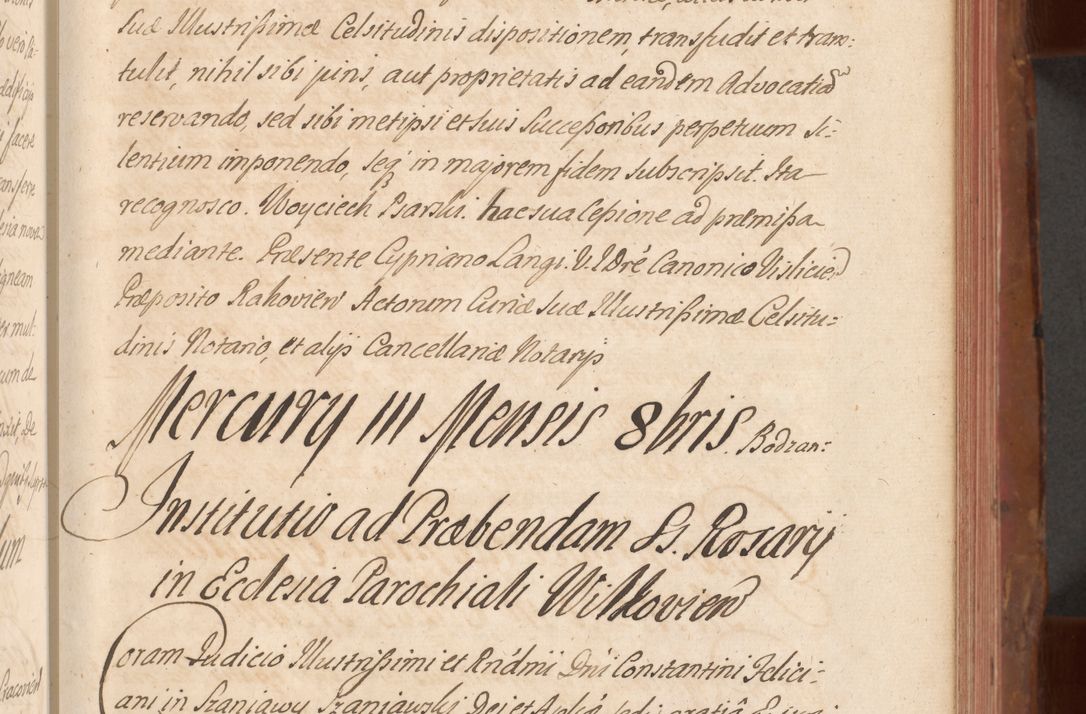 Suæ Illustrissimæ Celsitudinis dispositionem, transfudit et trans:
tulit, nihil sibi juris, aut proprietatis ad eandem Advocatiã
reservando, sed sibi metipsi et suis Successoribus perpetuum si:
lentium imponendo, seq' in majorem fidem subscripsit. Ita
recognosco. Woyciech Psarski. hac sua Cessione ad præmissa
mediante. Præsente Cypriano Langi. V. I. Dre Canonico Vislicien
Præposito Rakovien Actorum Curiæ Suæ Illustrissimæ Celsitu:
dinis Notario, et alijs Cancellariæ Notarijs
Mercury III Mensis 8bris. Bodzan:
Institutio ad Præbendam Ss. Rosarij
in Ecclesia Parochiali Wilkovien
Coram Judicio Illustrissimi et Rndmi Dni Constantini Felici:
ani in Szaniawy Szaniawski Dei et Aplicæ Sedis gratiâ